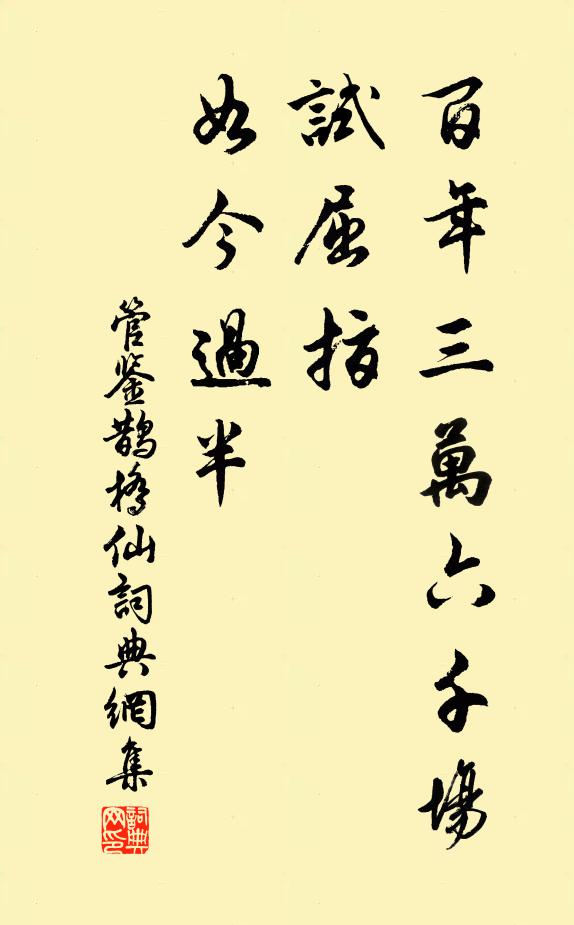 百年三萬六千場
試屈指
如今過半
管鉴鵲橋仙詞典網集
詞典网印